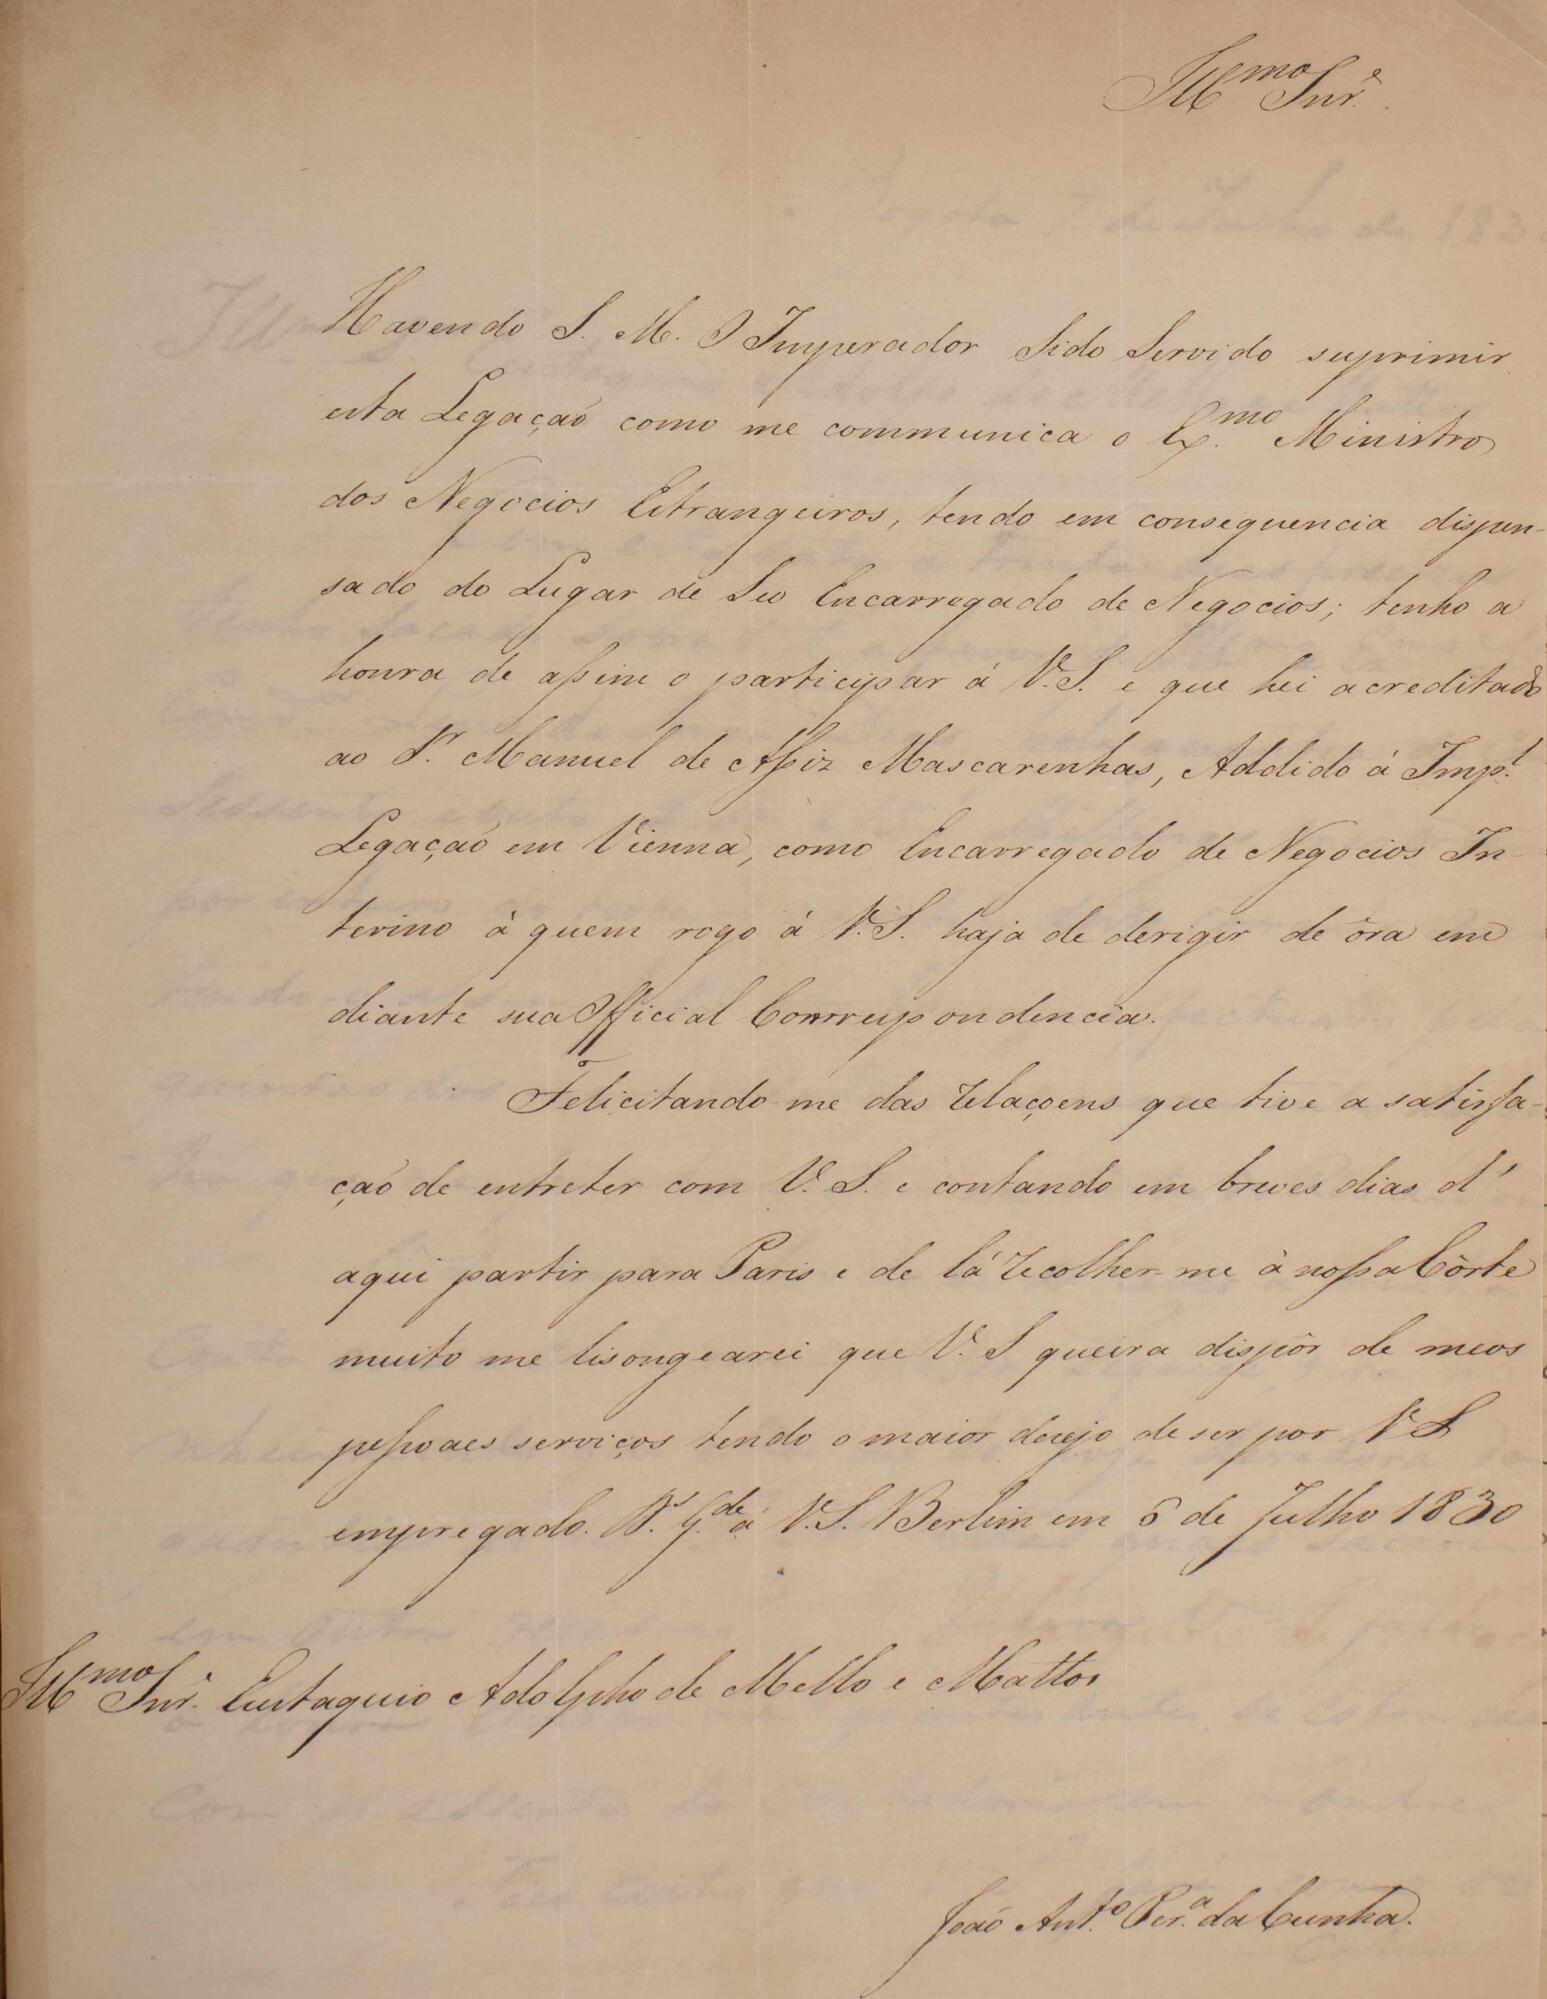 Ill.mo Snr.e
Havendo S. M. O Imperador Sido Servido suprimir
esta Legação como me communica o Ex.mo Ministro
dos Negocios Estrangeiros, tendo em consequencia dispen-
sado do Lugar de Seu Encarregado de Negocios; tenho a
honra de assim o participar á V. S. e que hei acreditado
ao Sr. Manuel de Assiz Mascarenhas, Addido á Imp.l
Legação em Vienna, como Encarregado de Negocios In-
terino à quem rogo á V. S. haja de derigir de óra em
diante sua Official Correspondencia.
Felicitando-me das relaçoens que tive a satisfa-
ção de entreter com V. S. e contando em breves dias d'
aqui partir para Paris e de lá recolher-me à nossa Côrte
muito me lisongearei que V. S queira dispôr de meos
pessoaes serviços tendo o maior desejo de ser por V S
empregado. D.s G.de á V. S. Berlim em 6 de Julho 1830
Ill.mo Snr.e Eustaquio Adolpho de Mello e Mattos
João Ant.o Per.a da Cunha.